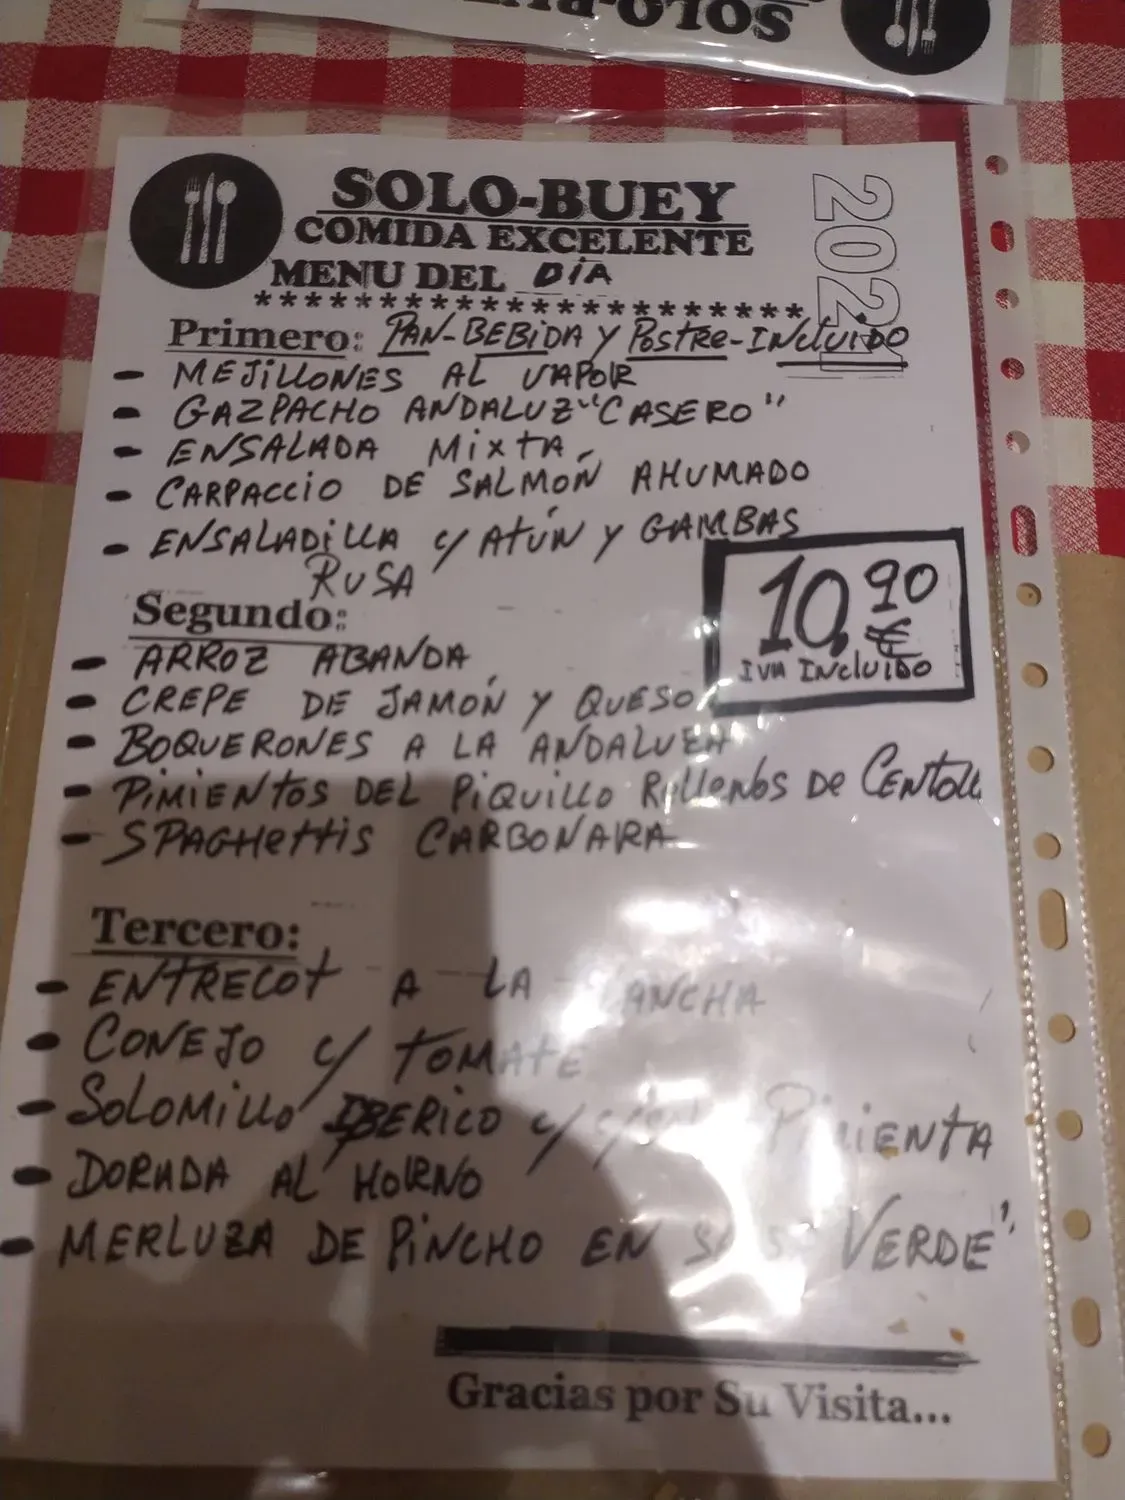 SOLO-BUEY
COMIDA EXCELENTE
MENU DEL DíA
2021
**********************
Primero: PAN-BEBiDA Y PostRe-INcluiDO
- MEJILLONES AL VAPOR
- GAZPACHO ANDALUZ "CASERO"
- ENSALADA MixtA
- CARPACCIO DE SALMÓN AHUMADO
- ENSALADiLLA c/ AtÚN Y GAMBAS
RUSA
10,90
€
IVA INcluiDO
Segundo:
- ARROZ ABANDA
- CREPE DE JAMÓN Y QUESO
- BOQUERONES A LA ANDALUZA
- PiMiENtOS DEL PiQUiLLO RellENOS DE CENtOLL
- SPAGHettiS CARBONARA
Tercero:
- ENtRECOt A LA ANCHA
- CONEJO c/ tOMAtE
- SOLOMiLLO IBERICO c/ PiMIENtA
- DORADA AL HORNO
- MERLUZA DE PiNCHO EN VERDE"
Gracias por Su Visita...
SOLO-BUEY